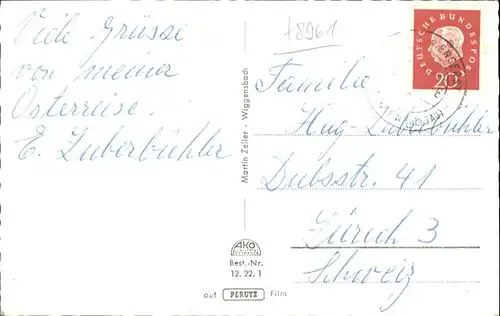 Viele Grüsse
von meiner
Osterreise.
E. Zuberbühler
+8961
DEUTSCHE BUNDESPOST
20
Familie
Hug-Zuberbühler
Dubsstr. 41
Zürich 3
Schweiz
Martin Zeller - Wiggensbach
AKO
Best.-Nr.
12. 22. 1
auf PERUTZ Film